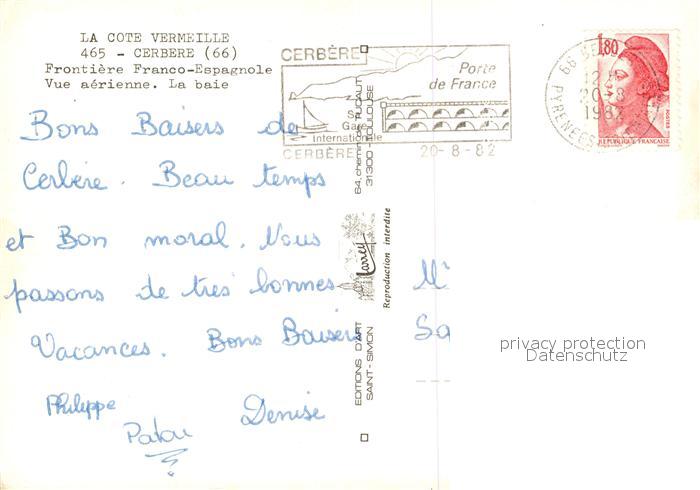 LA COTE VERMEILLE
465 - CERBERE (66)
Frontière Franco-Espagnole
Vue aérienne. La baie
CERBÈRE
Porte
de France
Sa
Gare
Internationale
CERBÈRE 20-8-82
66
12
20-8
1982
PYRENEES
1,80
REPUBLIQUE FRANCAISE
POSTES
Bons Baisers de
Cerbère. Beau temps
et Bon moral. Nous
passons de très bonnes
Vacances. Bons Baisers
Philippe
Patou
Denise
64, chemin de TUCAUT
31300 - TOULOUSE
Larrey
Reproduction interdite
EDITIONS D'ART
SAINT-SIMON
M
Sa
privacy protection
Datenschutz